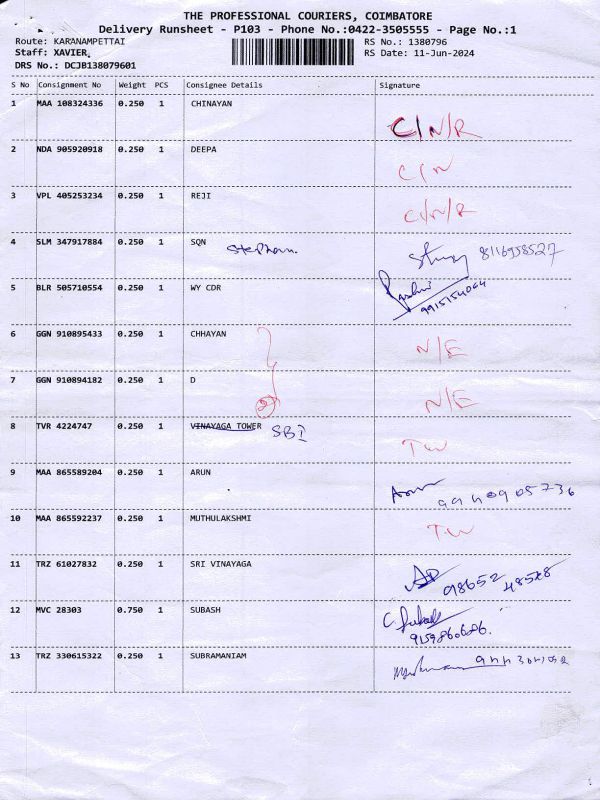 THE PROFESSIONAL COURIERS, COIMBATORE
Delivery Runsheet - P103 - Phone No.:0422-3505555 - Page No.:1
Route: KARANAMPETTAI RS No.: 1380796
Staff: XAVIER, RS Date: 11-Jun-2024
DRS No.: DCJB138079601
S No Consignment No Weight PCS Consignee Details Signature
1 MAA 108324336 0.250 1 CHINAYAN C/N/R
2 NDA 905920918 0.250 1 DEEPA C/N
3 VPL 405253234 0.250 1 REJI C/N/R
4 SLM 347917884 0.250 1 SQN 8116958527
5 BLR 505710554 0.250 1 WY CDR 9915154064
6 GGN 910895433 0.250 1 CHHAYAN N/E
7 GGN 910894182 0.250 1 D 2 N/E
8 TVR 4224747 0.250 1 VINAYAGA TOWER SBI TW
9 MAA 865589204 0.250 1 ARUN Arun
10 MAA 865592237 0.250 1 MUTHULAKSHMI TW
11 TRZ 61027832 0.250 1 SRI VINAYAGA 98652 48528
12 MVC 28303 0.750 1 SUBASH C. Subash
9159860686.
13 TRZ 330615322 0.250 1 SUBRAMANIAM